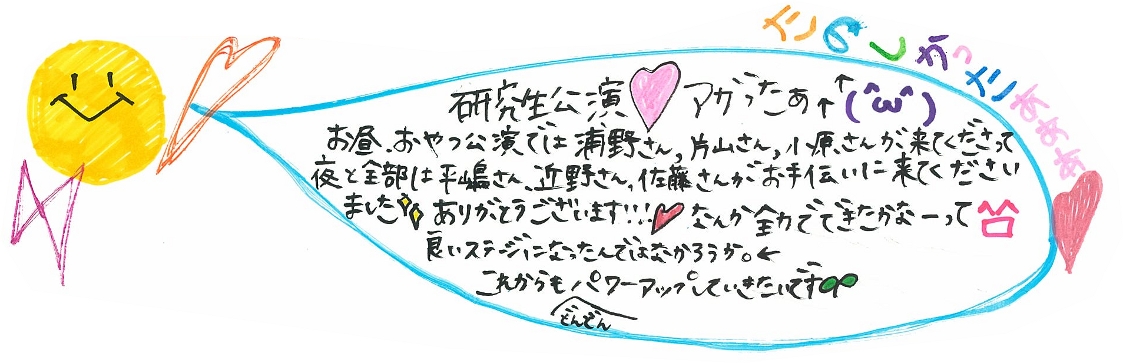 たのしかったあああ
研究生公演♡アガったぁ↑↑(^ω^)
お昼、おやつ公演では浦野さん,片山さん,小原さんが来てくださって
夜と全部は平嶋さん、近野さん,佐藤さんがお手伝いに来てください
ました ありがとうございます!!!♡なんか全力でできたかなーって^^
良いステージになったんではなかろうか。←
これからもパワーアップしていきたいです
どんどん